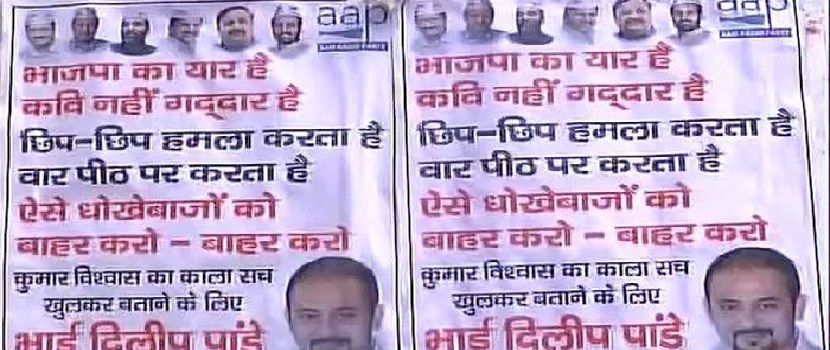 aap
AAM AADMI PARTY
भाजपा का यार है
कवि नहीं गद्दार है
छिप-छिप हमला करता है
वार पीठ पर करता है
ऐसे धोखेबाजों को
बाहर करो - बाहर करो
कुमार विश्वास का काला सच
खुलकर बताने के लिए
भाई दिलीप पांडे
aap
AAM AADMI PARTY
भाजपा का यार है
कवि नहीं गद्दार है
छिप-छिप हमला करता है
वार पीठ पर करता है
ऐसे धोखेबाजों को
बाहर करो - बाहर करो
कुमार विश्वास का काला सच
खुलकर बताने के लिए
भाई दिलीप पांडे